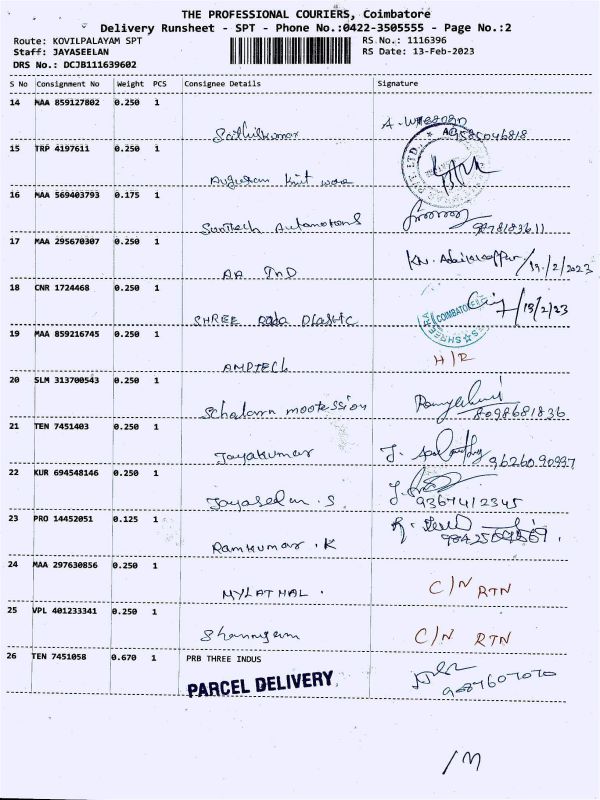 THE PROFESSIONAL COURIERS, Coimbatore
Delivery Runsheet - SPT - Phone No.:0422-3505555 - Page No.:2
Route: KOVILPALAYAM SPT RS.No.: 1116396
Staff: JAYASEELAN RS Date: 13-Feb-2023
DRS No.: DCJB111639602
S No Consignment No Weight PCS Consignee Details Signature
14 MAA 859127802 0.250 1
Sathishkumar
15 TRP 4197611 0.250 1
knit
16 MAA 569403793 0.175 1
Suntech Automotions 9878183611
17 MAA 295670307 0.250 1
AA IND KN. /19/2/2023
18 CNR 1724468 0.250 1
SHREE Rada Plastic COIMBATORE SHREE /13/2/23
19 MAA 859216745 0.250 1 H/R
AMPTECH
20 SLM 313700543 0.250 1
8098681836
21 TEN 7451403 0.250 1
Jayakumar J. 9626090997
22 KUR 694548146 0.250 1
Jayaseelan . S 9367412345
23 PRO 14452051 0.125 1
Ramkumar . K
24 MAA 297630856 0.250 1
MYLATHAL . C/N RTN
25 VPL 401233341 0.250 1
Shanmugam C/N RTN
26 TEN 7451058 0.670 1 PRB THREE INDUS
PARCEL DELIVERY 9087607070
/M